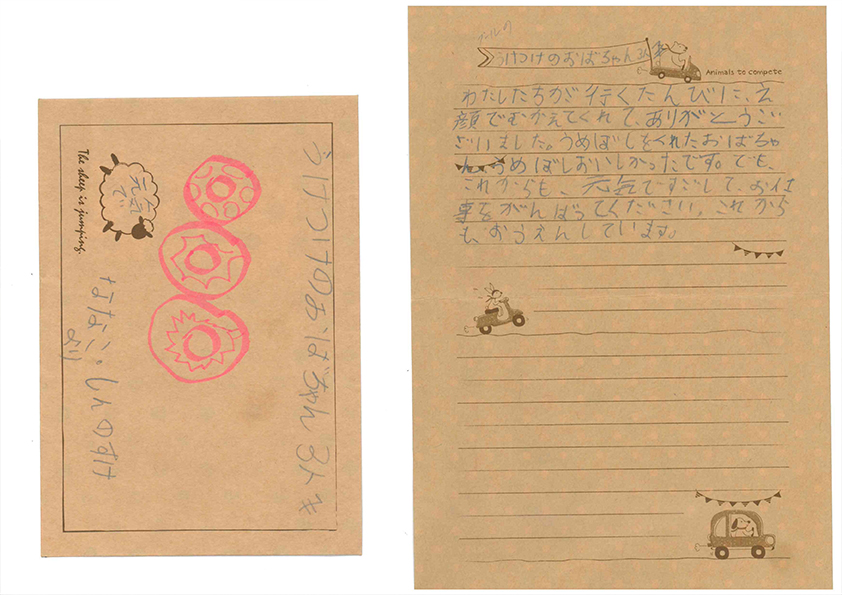 The sheep is jumping.
元気で
うけつけのおばちゃんへ
ななこ・しんのすけ
より
プールの
うけつけのおばちゃんへ
Animals to compete
わたしたちが行くたんびに、え
顔でむかえてくれて、ありがとうご
ざいました。うめぼしをくれたおばちゃ
ん、うめぼしおいしかったです。でも、
これからも、元気ですごして、お仕
事をがんばってください。これから
も、おうえんしています。